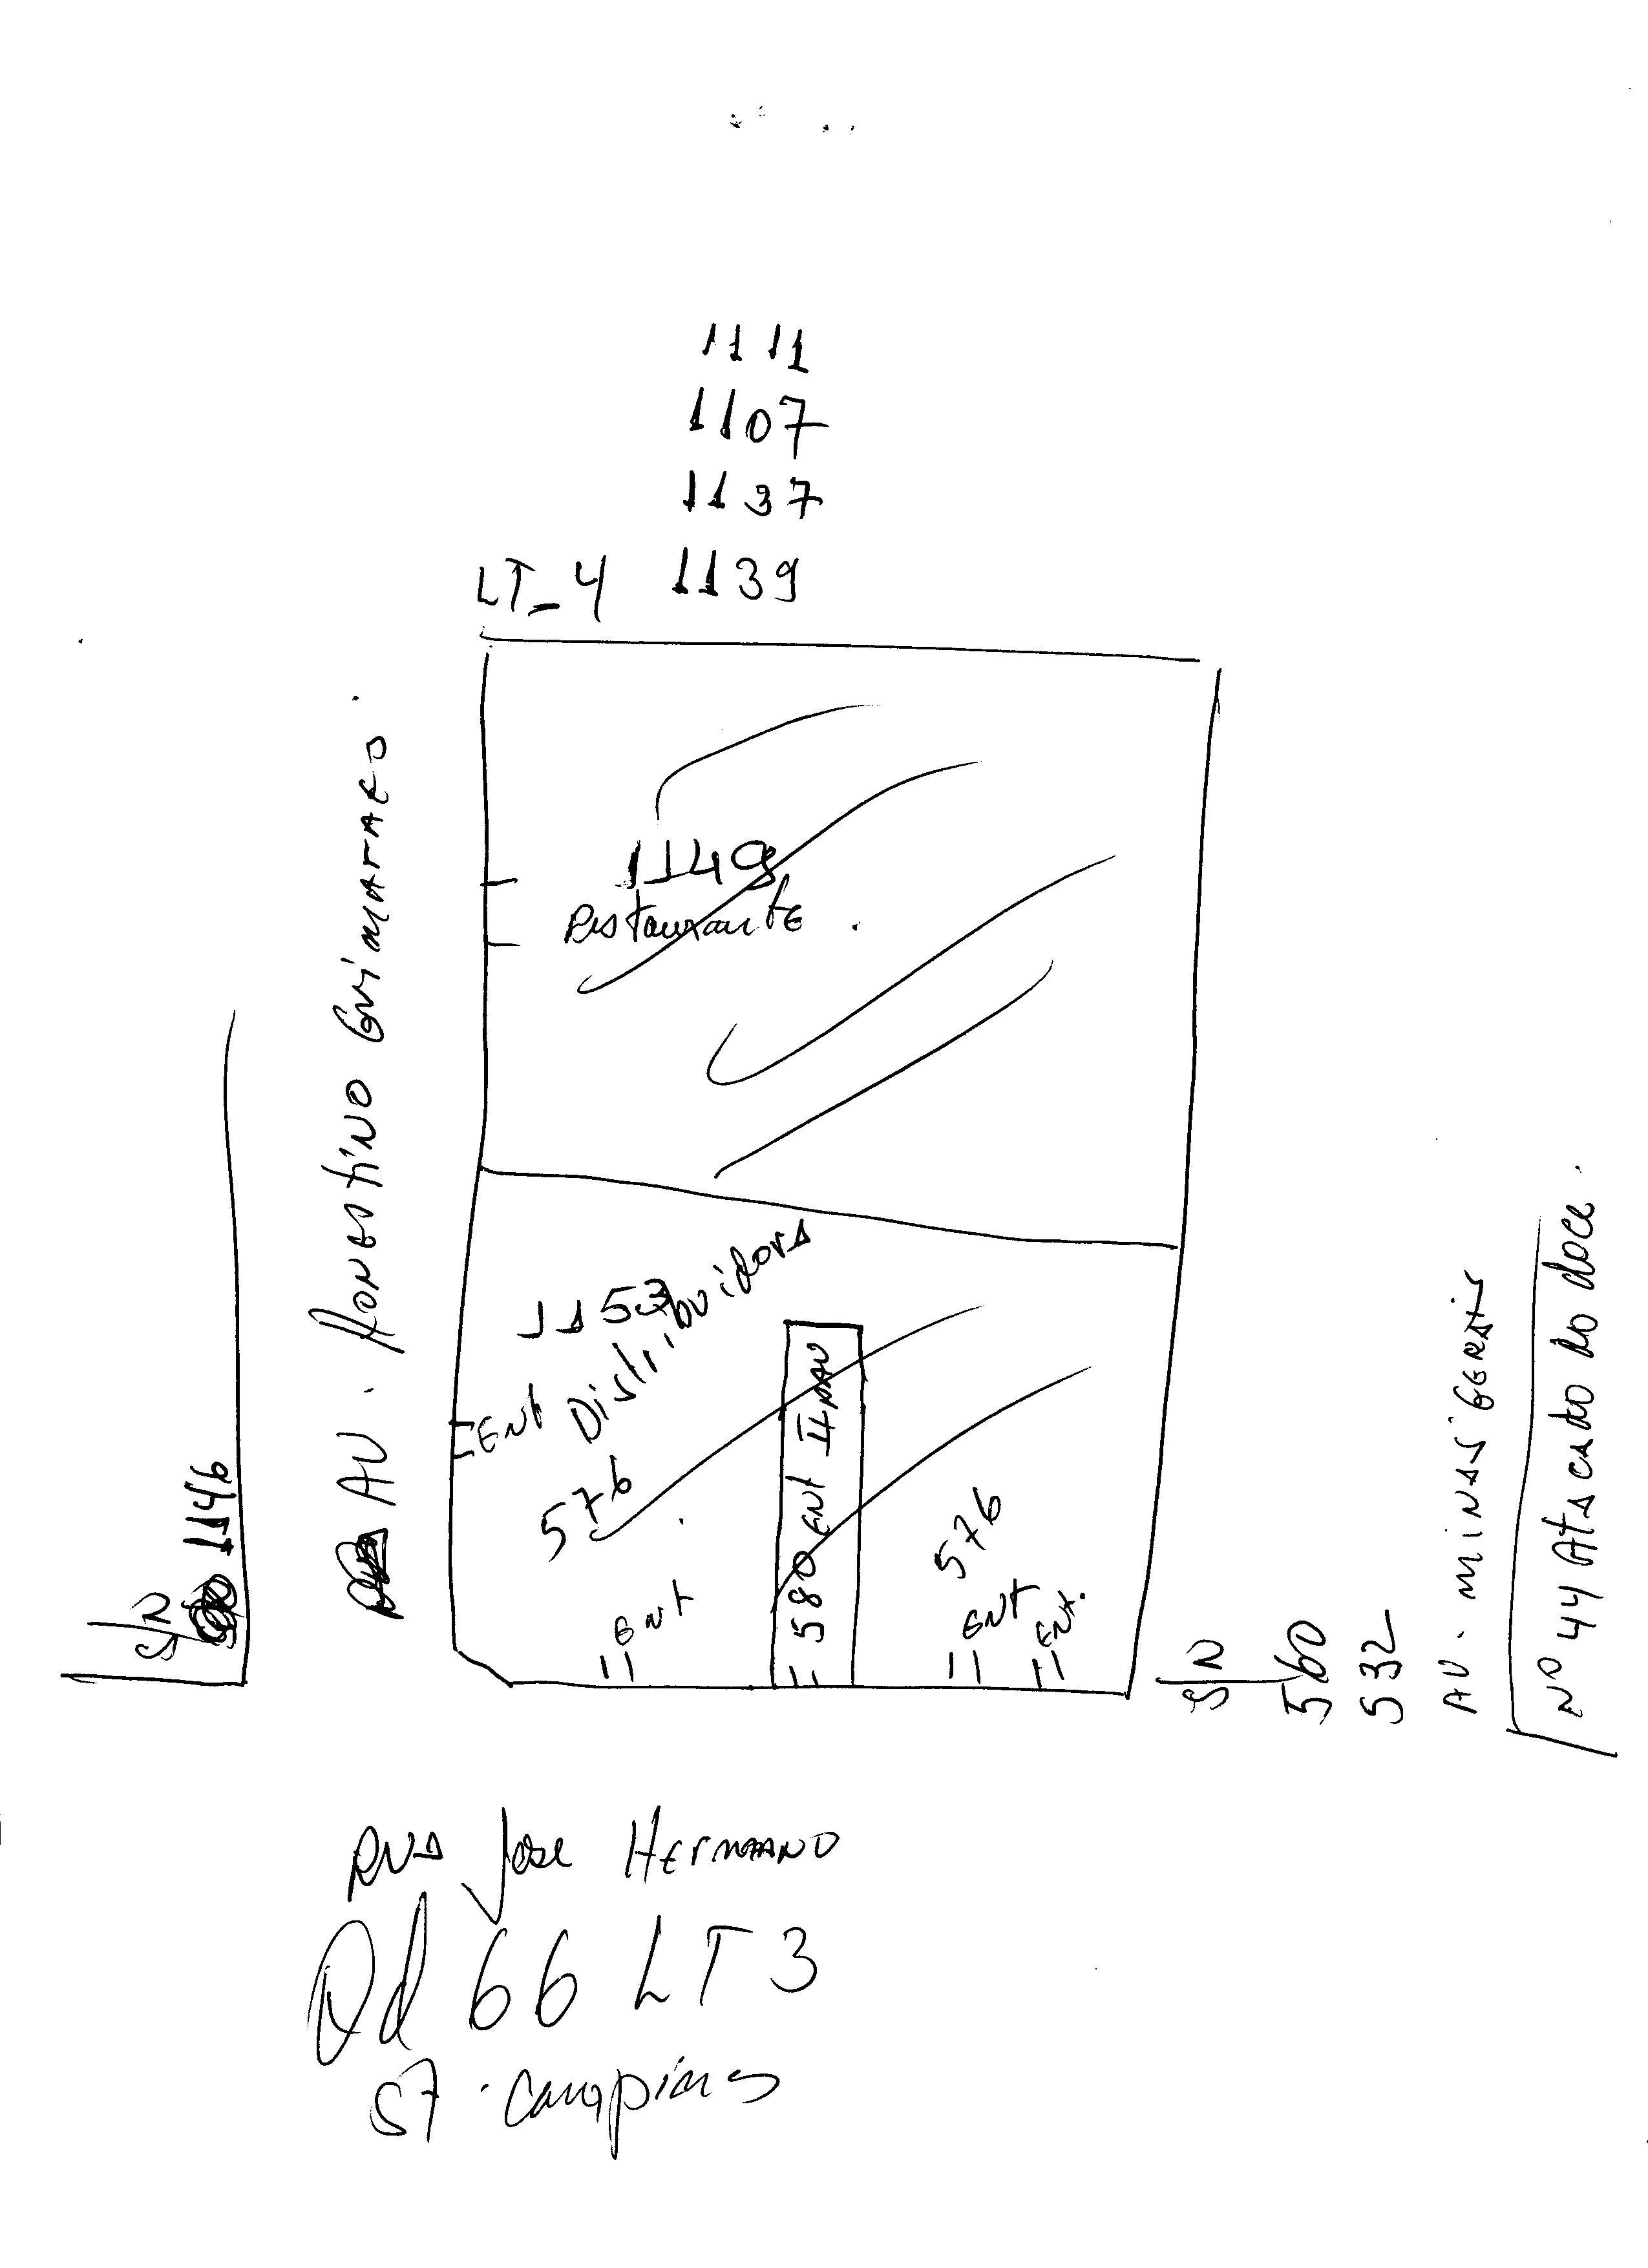 1111
1107
1137
LT_4 1139
1149
Restaurante
AV. HONESTINO GUIMARAES
1153
ENt Distribuidora
576
580 ENt II PAV
576
ENt
ENt
ENt.
S/N
1146
S/N
560
532
AV. MINAS GERAIS
Nº 44 AtACADO DO doce.
RUA Jose HERMANO
Qd 66 LT 3
ST. Campinas